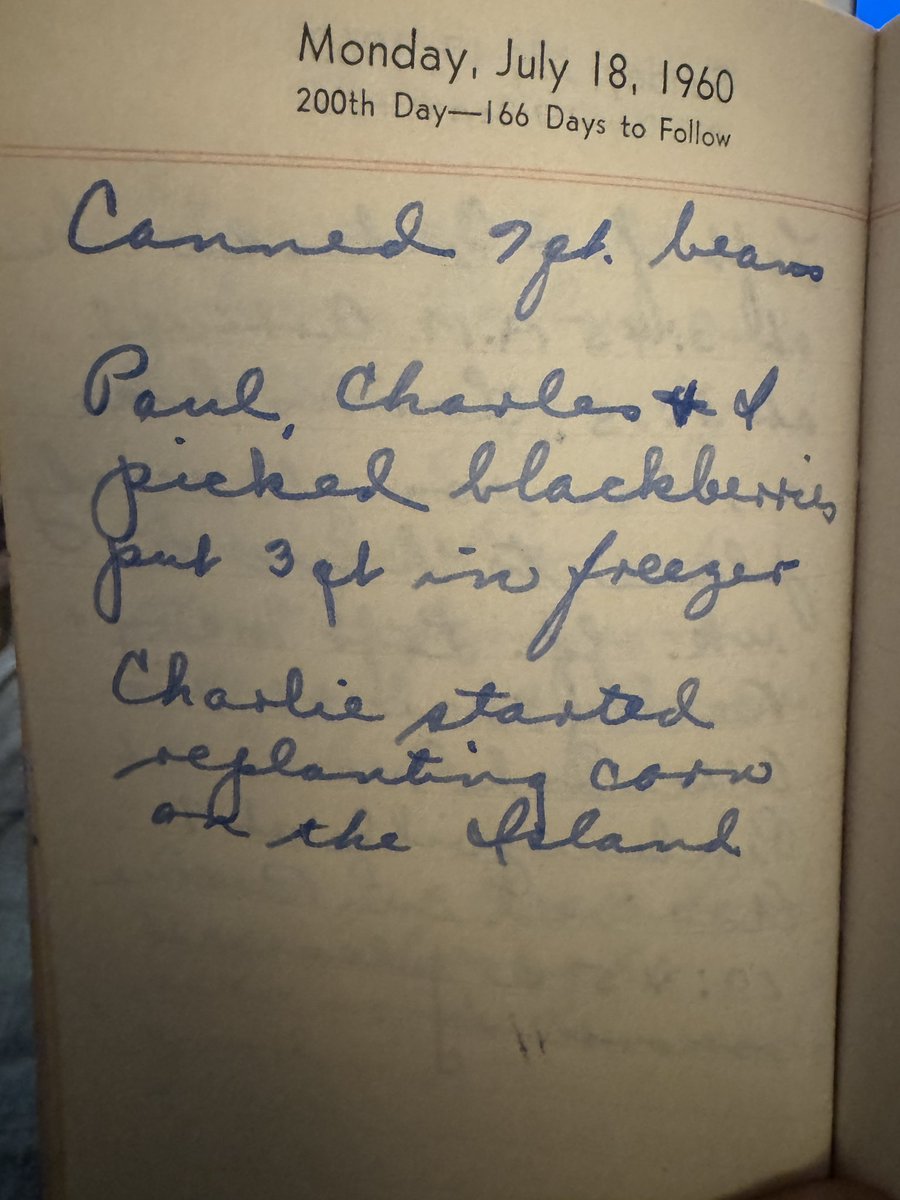 Monday, July 18, 1960
200th Day—166 Days to Follow
Canned 7 qt. beans
Paul, Charles & I
picked blackberries
put 3 qt in freezer
Charlie started
replanting corn
on the Island